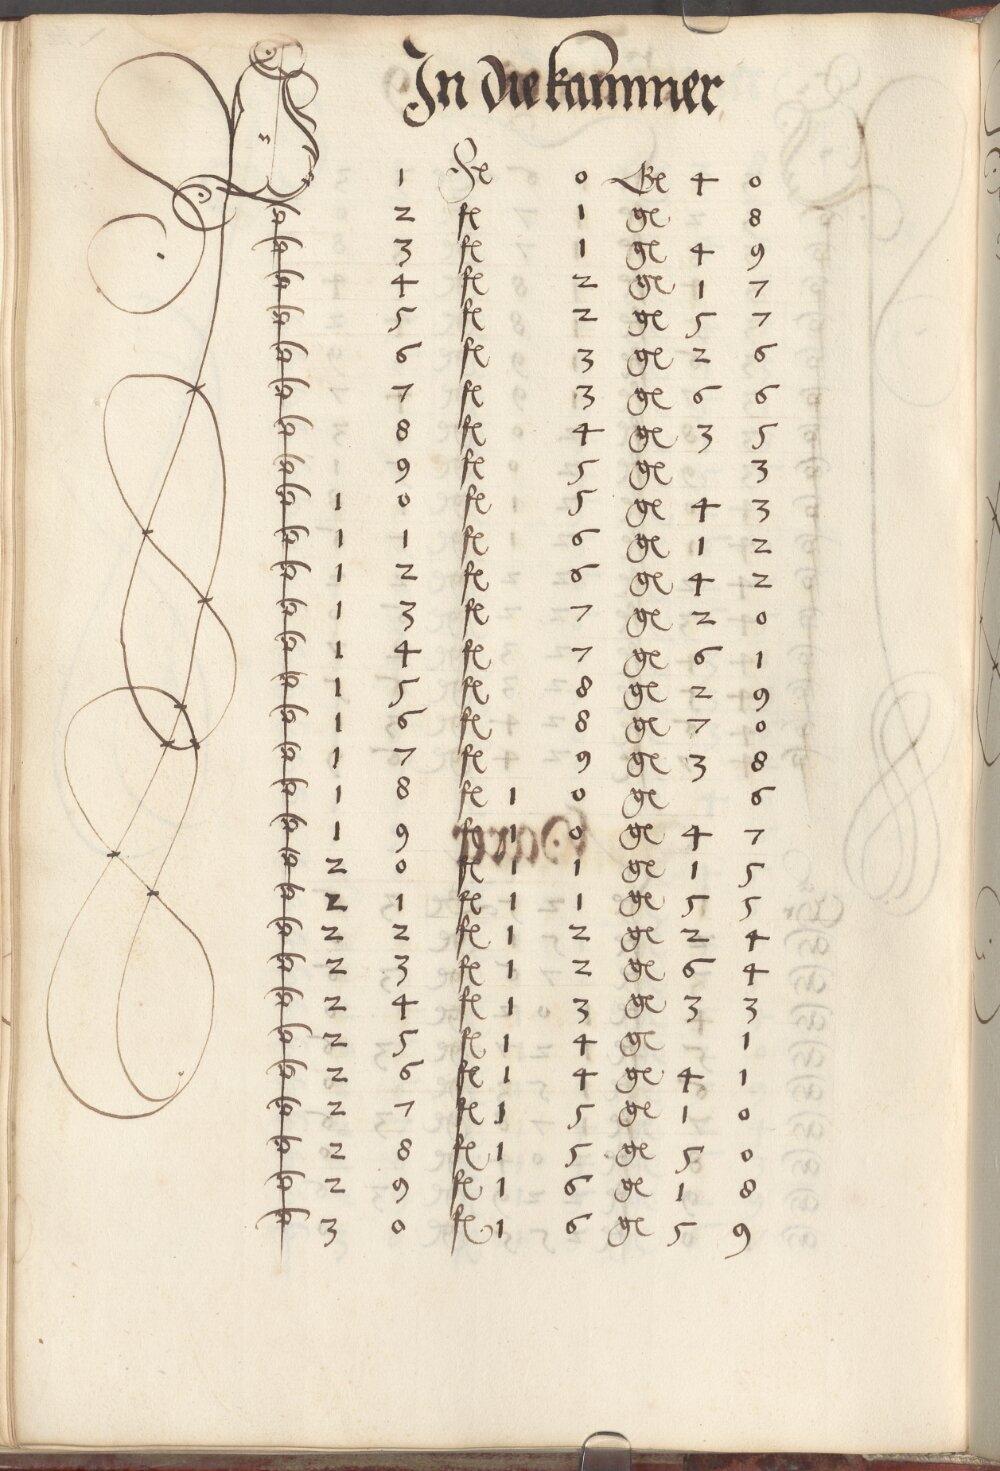 In die kammer
1 fe 0 ge 4 0
2 fe 1 ge 8
3 fe 1 ge 4 9
4 fe 2 ge 1 7
5 fe 2 ge 5 7
6 fe 3 ge 2 6
7 fe 3 ge 6 6
8 fe 4 ge 3 5
9 fe 5 ge 3
1 0 fe 5 ge 4 3
1 1 fe 6 ge 1 2
1 2 fe 6 ge 4 2
1 3 fe 7 ge 2 0
1 4 fe 7 ge 6 1
1 5 fe 8 ge 2 9
1 6 fe 8 ge 7 0
1 7 fe 9 ge 3 8
1 8 fe 1 0 ge 6
1 9 fe 1 0 ge 4 7
2 0 fe 1 1 ge 1 5
2 1 fe 1 1 ge 5 5
2 2 fe 1 2 ge 2 4
2 3 fe 1 2 ge 6 4
2 4 fe 1 3 ge 3 3
2 5 fe 1 4 ge 1
2 6 fe 1 4 ge 4 1
2 7 fe 1 5 ge 1 0
2 8 fe 1 5 ge 5 0
2 9 fe 1 6 ge 1 8
3 0 fe 1 6 ge 5 9